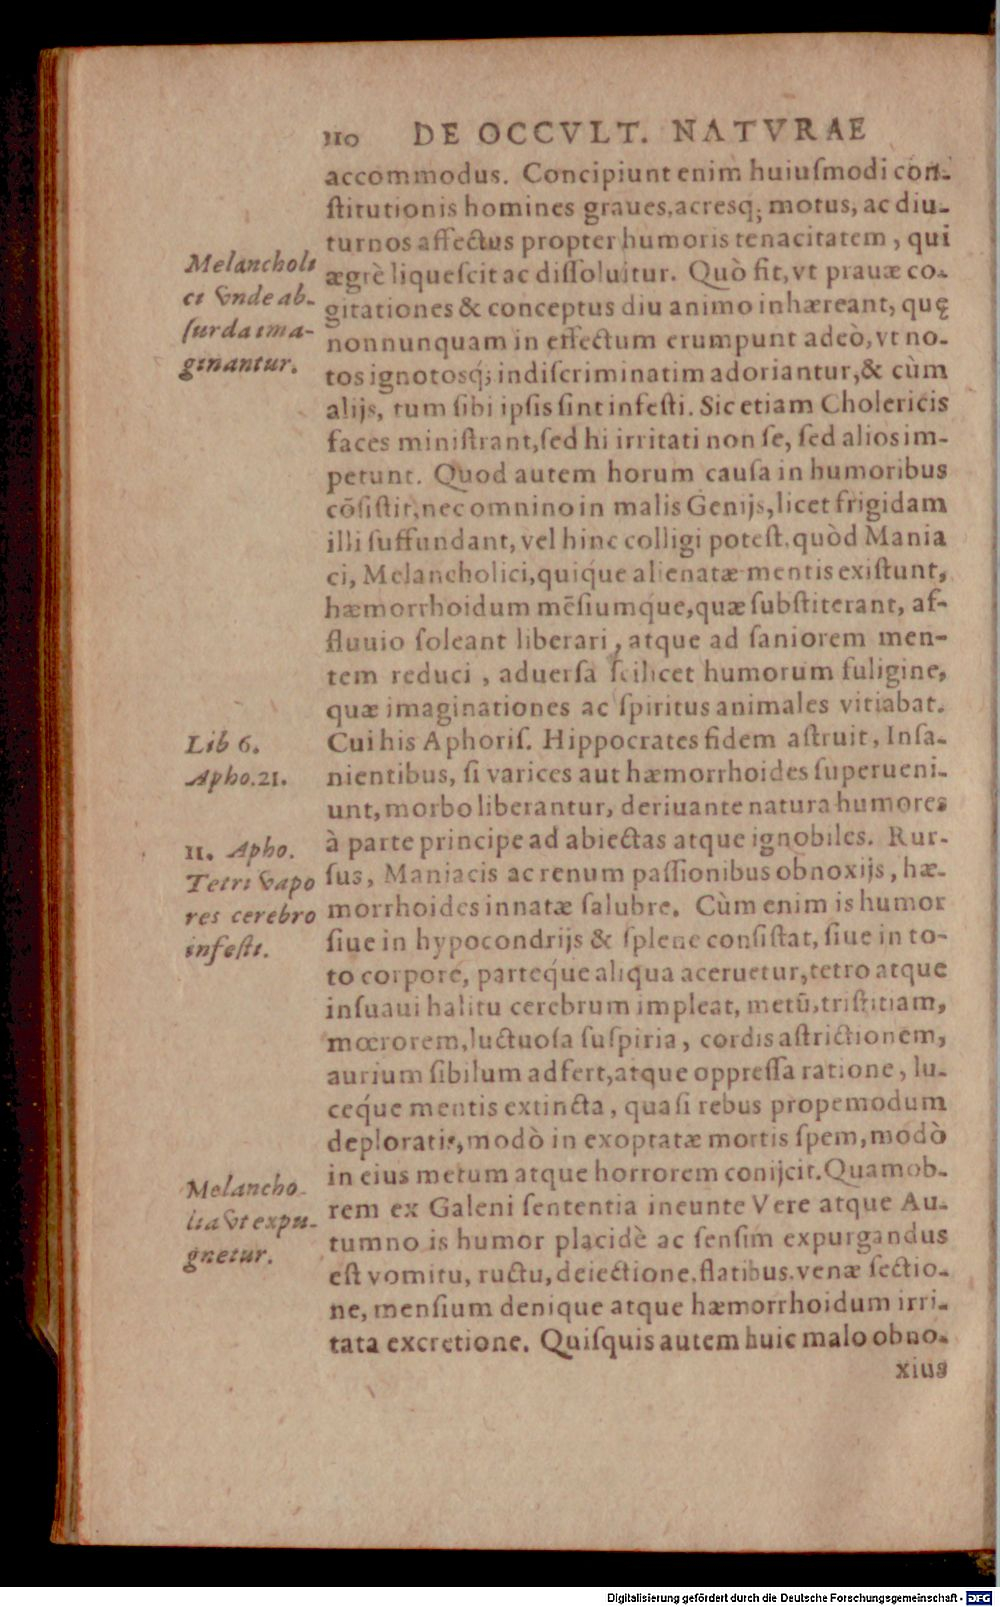 110 DE OCCVLT. NATVRAE
accommodus. Concipiunt enim huiuſmodi con-
ſtitutionis homines graues, acresq; motus, ac diu-
turnos affectus propter humoris tenacitatem, qui
ægrè liqueſcit ac diſſoluitur. Quò fit, vt prauæ co-
gitationes & conceptus diu animo inhæreant, quę
nonnunquam in effectum erumpunt adeò, vt no-
tos ignotosq́; indiſcriminatim adoriantur, & cùm
alijs, tum ſibi ipſis ſint infeſti. Sic etiam Cholericis
faces miniſtrant, ſed hi irritati non ſe, ſed alios im-
petunt. Quod autem horum cauſa in humoribus
cõſiſtit, nec omnino in malis Genijs, licet frigidam
illi ſuffundant, vel hinc colligi poteſt, quòd Mania
ci, Melancholici, quique alienatæ mentis exiſtunt,
hæmorrhoidum mẽſiumque, quæ ſubſtiterant, af-
fluuio ſoleant liberari, atque ad ſaniorem men-
tem reduci, aduerſa ſcilicet humorum fuligine,
quæ imaginationes ac ſpiritus animales vitiabat.
Cui his Aphoriſ. Hippocrates fidem aſtruit, Inſa-
nientibus, ſi varices aut hæmorrhoides ſuperueni-
unt, morbo liberantur, deriuante natura humores
à parte principe ad abiectas atque ignobiles. Rur-
ſus, Maniacis ac renum paſſionibus obnoxijs, hæ-
morrhoides innatæ ſalubre. Cùm enim is humor
ſiue in hypocondrijs & ſplene conſiſtat, ſiue in to-
to corpore, parteq́ue aliqua aceruetur, tetro atque
inſuaui halitu cerebrum impleat, metũ, triſtitiam,
mœrorem, luctuoſa ſuſpiria, cordis aſtrictionem,
aurium ſibilum adfert, atque oppreſſa ratione, lu-
ceq́ue mentis extincta, quaſi rebus propemodum
deploratis, modò in exoptatæ mortis ſpem, modò
in eius metum atque horrorem conijcit. Quamob-
rem ex Galeni ſententia ineunte Vere atque Au-
tumno is humor placidè ac ſenſim expurgandus
eſt vomitu, ructu, deiectione, flatibus, venæ ſectio-
ne, menſium denique atque hæmorrhoidum irri-
tata excretione. Quiſquis autem huic malo obno-
xius
Melancholi
ci vnde ab-
ſurda ima-
ginantur.
Lib 6.
Apho. 21.
11. Apho.
Tetri vapo
res cerebro
infeſti.
Melancho-
lia vt expu-
gnetur.
Digitalisierung gefördert durch die Deutsche Forschungsgemeinschaft - DFG